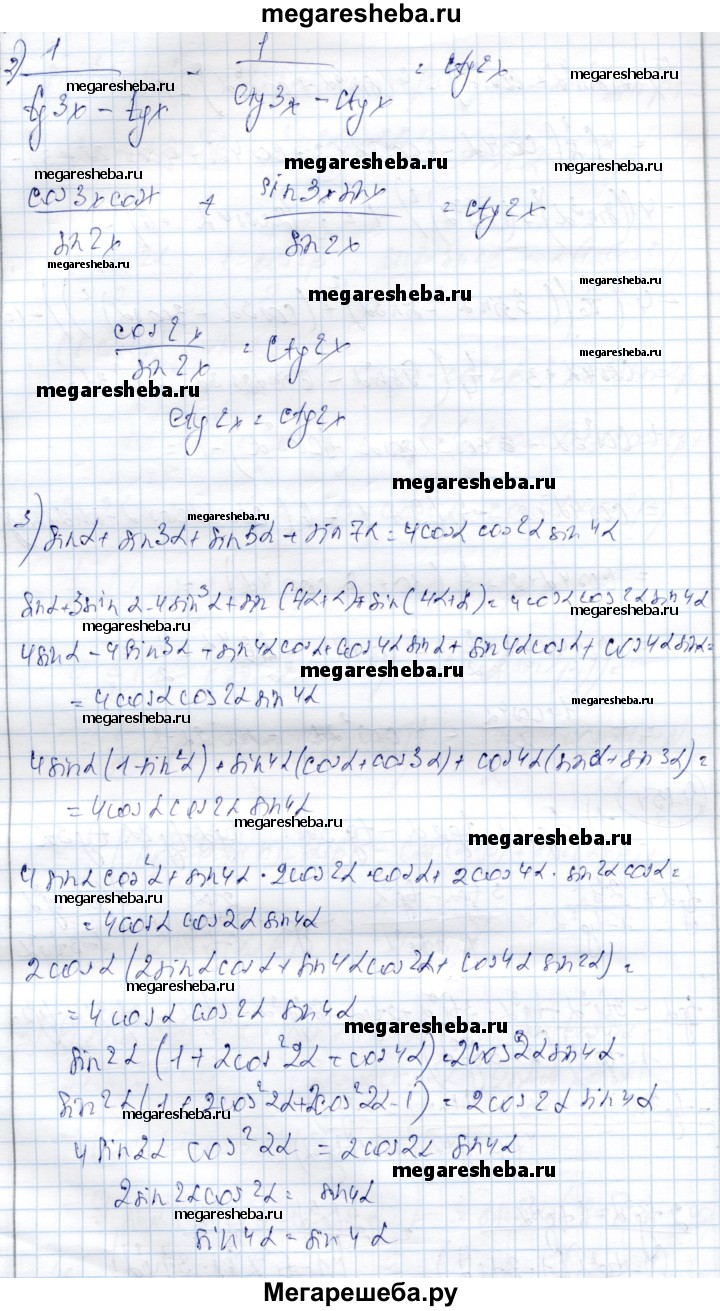 megaresheba.ru
2) 1/(tg3x - tgx) - 1/(ctg3x - ctgx) = ctg2x
megaresheba.ru
megaresheba.ru
megaresheba.ru
megaresheba.ru
cos3xcosx/sin2x + sin3xsinx/sin2x = ctg2x
megaresheba.ru
megaresheba.ru
cos2x/sin2x = ctg2x
megaresheba.ru
megaresheba.ru
ctg2x = ctg2x
megaresheba.ru
megaresheba.ru
3) sinα + sin3α + sin5α + sin7α = 4cosα cos2α sin4α
sinα+3sinα-4sin³α+sin(4α+α)+sin(4α+ )=4cosαcos2αsin4α
megaresheba.ru
4sinα-4sin3α+sin4αcosα+cos4αsinα+sin4αcosα+cos4αsinα=
megaresheba.ru
= 4cosαcos2αsin4α
megaresheba.ru
megaresheba.ru
4sinα(1-sin²α)+sin4α(cosα+cos3α)+cos4α(sinα+sin3α)=
= 4cosαcos2αsin4α
megaresheba.ru
megaresheba.ru
4sinαcos²α+sin4α·2cos2α·cosα+2cos4α·sin2αcosα=
megaresheba.ru
= 4cosαcos2αsin4α
2cosα(2sinαcosα+sin4αcos2α+cos4αsin2α)=
megaresheba.ru
= 4cosα cos2α sin4α
megaresheba.ru
sin2α(1+2cos²2α+cos4α)=2cos2αsin4α
sin2α(1+2cos²2α+2cos²2α-1)=2cos2αsin4α
megaresheba.ru
4sin2α cos²2α = 2cos2α sin4α
megaresheba.ru
2sin2αcos2α = sin4α
megaresheba.ru
sin4α = sin4α
Мегарешеба.ру